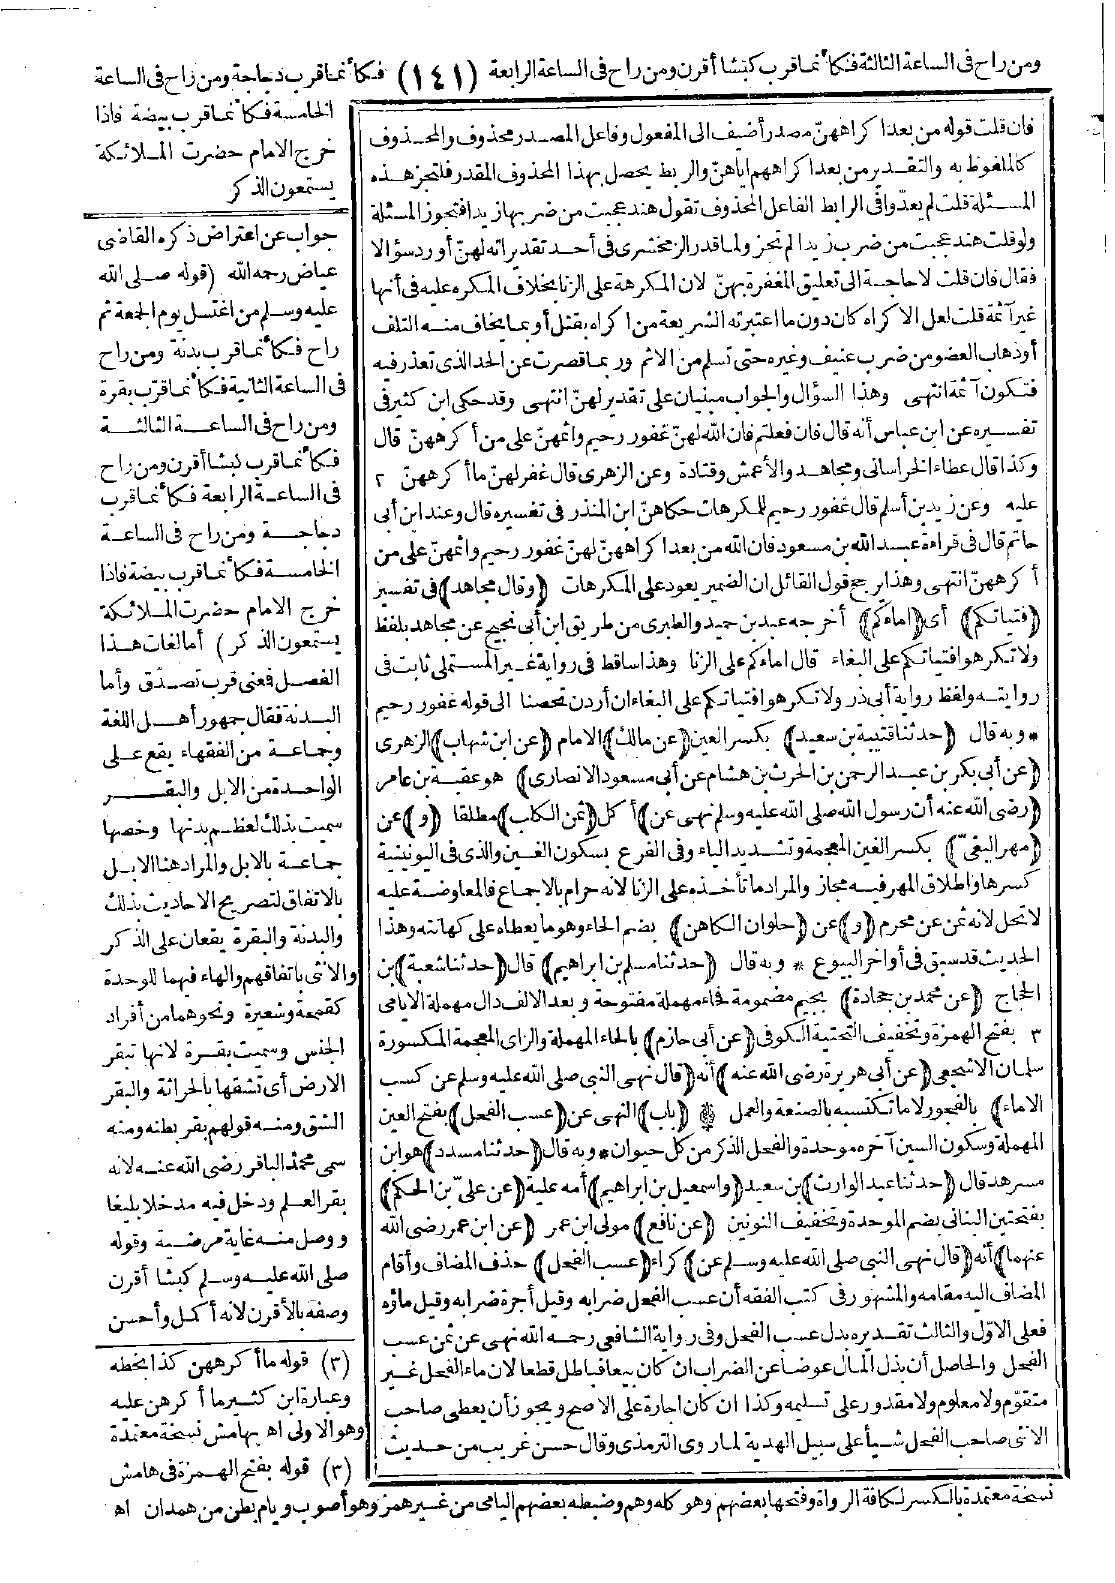 ومن راح في الساعة الثالثة فكأنما قرب كبشا أقرن ومن راح في الساعة الرابعة (١٤١) فكأنما قرب دجاجة ومن راح في الساعة
الخامسة فكأنما قرب بيضة فاذا
خرج الامام حضرت الملائكة
يستمعون الذكر
فان قلت قوله من بعد اكراههنّ مصدر أضيف الى المفعول وفاعل المصدر محذوف والمحذوف
كالملفوظ به والتقدير من بعد اكراههم اياهنّ والربط يحصل بهذا المحذوف المقدر فلتجز هذه
المسئلة قلت لم يعدّوا فى الرابط الفاعل المحذوف تقول هند عجبت من ضربها زيدا فتجوز المسئلة
ولو قلت هند عجبت من ضرب زيدا لم تجز ولما قدر الزمخشرى فى أحد تقديراته لهنّ أورد سؤالا
فقال فان قلت لا حاجة الى تعليق المغفرة بهنّ لان المكرهة على الزنا بخلاف المكره عليه فى أنها
غير آثمة قلت لعل الاكراه كان دون ما اعتبرته الشريعة من اكراه بقتل أو بما يخاف منه التلف
أو ذهاب العضو من ضرب عنيف وغيره حتى تسلم من الاثم وربما قصرت عن الحد الذى تعذر فيه
فتكون آثمة انتهى وهذا السؤال والجواب مبنيان على تقدير لهنّ انتهى وقد حكى ابن كثير فى
تفسيره عن ابن عباس أنه قال فان فعلتم فان الله لهنّ غفور رحيم واثمهنّ على من أكرههنّ قال
وكذا قال عطاء الخراسانى ومجاهد والأعمش وقتادة وعن الزهرى قال غفر لهنّ ما أكرههنّ ٢
عليه وعن زيد بن أسلم قال غفور رحيم للمكرهات حكاهنّ ابن المنذر فى تفسيره قال وعند ابن أبى
حاتم قال فى قراءة عبد الله بن مسعود فان الله من بعد اكراههنّ لهنّ غفور رحيم واثمهنّ على من
أكرههنّ انتهى وهذا يرجح قول القائل ان الضمير يعود على المكرهات (وقال مجاهد) فى تفسير
(فتياتكم) أى (اماءكم) أخرجه عبد بن حميد والطبرى من طريق ابن أبى نجيح عن مجاهد بلفظ
ولا تكرهوا فتياتكم على البغاء قال اماءكم على الزنا وهذا ساقط فى رواية غير المستملى ثابت فى
روايته ولفظ رواية أبى ذر ولا تكرهوا فتياتكم على البغاء ان أردن تحصنا الى قوله غفور رحيم
* وبه قال (حدثنا قتيبة بن سعيد) بكسر العين (عن مالك) الامام (عن ابن شهاب) الزهرى
(عن أبى بكر بن عبد الرحمن بن الحرث بن هشام عن أبى مسعود الانصارى) هو عقبة بن عامر
(رضى الله عنه أن رسول الله صلى الله عليه وسلم نهى عن) أكل (ثمن الكلب) مطلقا (و) عن
(مهر البغىّ) بكسر الغين المعجمة وتشديد الياء وفى الفرع بسكون الغين والذى فى اليونينية
كسرها واطلاق المهر فيه مجاز والمراد ما تأخذه على الزنا لانه حرام بالاجماع فالمعاوضة عليه
لا تحل لانه ثمن عن محرم (و) عن (حلوان الكاهن) بضم الحاء وهو ما يعطاه على كهانته وهذا
الحديث قد سبق فى أواخر البيوع * وبه قال (حدثنا مسلم بن ابراهيم) قال (حدثنا شعبة) بن
الحجاج (عن محمد بن جحادة) بجيم مضمومة فحاء مهملة مفتوحة وبعد الالف دال مهملة الايامى
٣ بفتح الهمزة وتخفيف التحتية الكوفى (عن أبى حازم) بالحاء المهملة والزاى المعجمة المكسورة
سلمان الاشجعى (عن أبى هريرة رضى الله عنه) أنه (قال نهى النبى صلى الله عليه وسلم عن كسب
الاماء) بالفجور لا ما تكتسبه بالصنعة والعمل (باب) النهى عن (عسب الفحل) بفتح العين
المهملة وسكون السين آخره موحدة والفحل الذكر من كل حيوان * وبه قال (حدثنا مسدد) هو ابن
مسرهد قال (حدثنا عبد الوارث) بن سعيد (واسمعيل بن ابراهيم) أمه علية (عن علىّ بن الحكم)
بفتحتين البنانى بضم الموحدة وتخفيف النونين (عن نافع) مولى ابن عمر (عن ابن عمر رضى الله
عنهما) أنه (قال نهى النبى صلى الله عليه وسلم عن) كراء (عسب الفحل) حذف المضاف وأقام
المضاف اليه مقامه والمشهور فى كتب الفقه أن عسب الفحل ضرابه وقيل أجرة ضرابه وقيل ماؤه
فعلى الاوّل والثالث تقديره بدل عسب الفحل وفى رواية الشافعى رحمه الله نهى عن ثمن عسب
الفحل والحاصل أن بذل المال عوضا عن الضراب ان كان بيعا فباطل قطعا لان ماء الفحل غير
متقوّم ولا معلوم ولا مقدور على تسليمه وكذا ان كان اجارة على الاصح ويجوز أن يعطى صاحب
الانثى صاحب الفحل شيأ على سبيل الهدية لما روى الترمذى وقال حسن غريب من حديث
جواب عن اعتراض ذكره القاضى
عياض رحمه الله (قوله صلى الله
عليه وسلم من اغتسل يوم الجمعة ثم
راح فكأنما قرب بدنة ومن راح
فى الساعة الثانية فكأنما قرب بقرة
ومن راح فى الساعة الثالثة
فكأنما قرب كبشا أقرن ومن راح
فى الساعة الرابعة فكأنما قرب
دجاجة ومن راح فى الساعة
الخامسة فكأنما قرب بيضة فاذا
خرج الامام حضرت الملائكة
يستمعون الذكر) أما لغات هذا
الفصل فمعنى قرب تصدّق وأما
البدنة فقال جمهور أهل اللغة
وجماعة من الفقهاء يقع على
الواحدة من الابل والبقر
سميت بذلك لعظم بدنها وخصها
جماعة بالابل والمراد هنا الابل
بالاتفاق لتصريح الاحاديث بذلك
والبدنة والبقرة يقعان على الذكر
والانثى باتفاقهم والهاء فيهما للوحدة
كقمحة وشعيرة ونحوهما من أفراد
الجنس وسميت بقرة لانها تبقر
الارض أى تشقها بالحراثة والبقر
الشق ومنه قولهم بقر بطنه ومنه
سمى محمد الباقر رضى الله عنه لانه
بقر العلم ودخل فيه مدخلا بليغا
ووصل منه غاية مرضية وقوله
صلى الله عليه وسلم كبشا أقرن
وصفه بالأقرن لانه أكمل وأحسن
(٣) قوله ما أكرههن كذا بخطه
وعبارة ابن كثير ما أكرهن عليه
وهو الاولى اه بهامش نسخة معتمدة
(٣) قوله بفتح الهمزة فى هامش
نسخة معتمدة بالكسر لكافة الرواة وفتحها بعضهم وهو كله وهم وضبطه بعضهم اليامى من غير همز وهو أصوب ويام بطن من همدان اه